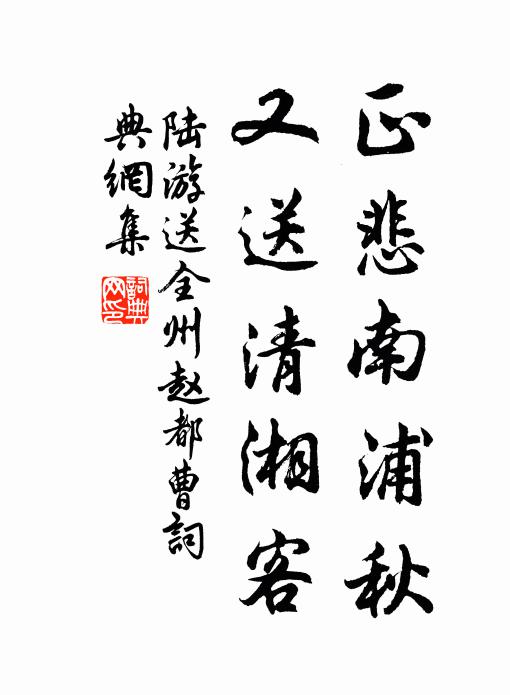 正悲南浦秋
又送清湘客
陆游送全州赵都曹詞
典網集
詞典网印